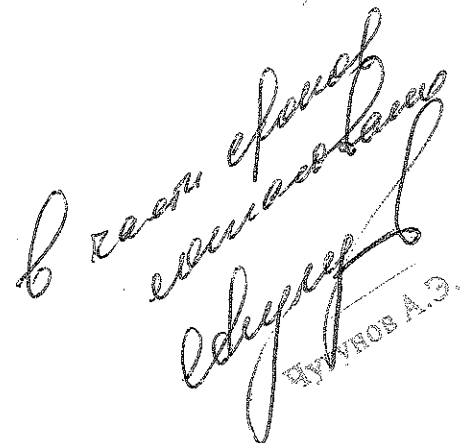 В части сроков
согласовано
Чугунов А.Э.